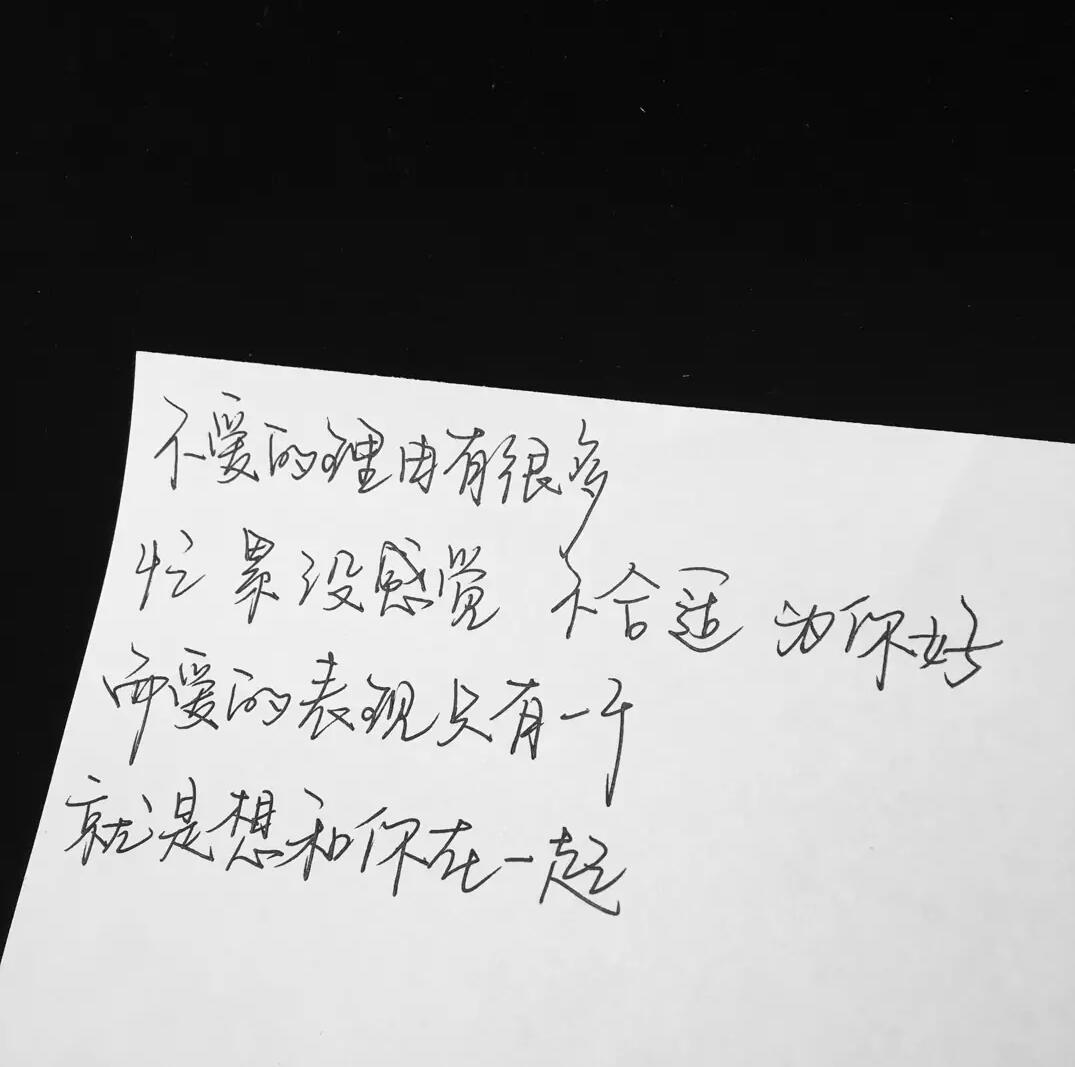 不爱的理由有很多
忙 累 没感觉 不合适 为你好
而爱的表现只有一个
就是想和你在一起